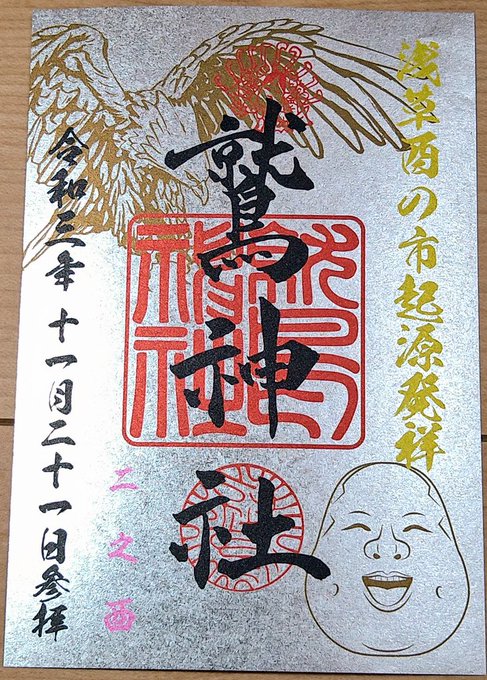 浅草酉の市起源発祥
鷲神社
二之酉
令和三年十一月二十一日参拝